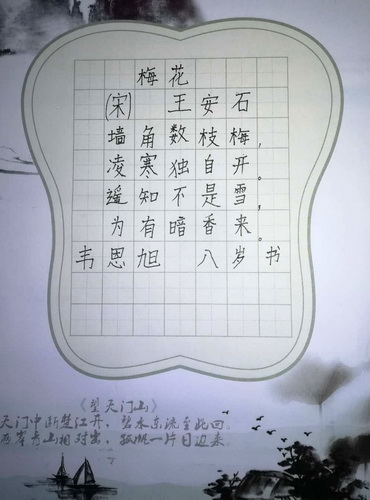 梅花
(宋) 王安石
墙角数枝梅，
凌寒独自开。
遥知不是雪，
为有暗香来。
韦思旭 八岁书
《望天门山》
天门中断楚江开，碧水东流至此回。
两岸青山相对出，孤帆一片日边来。